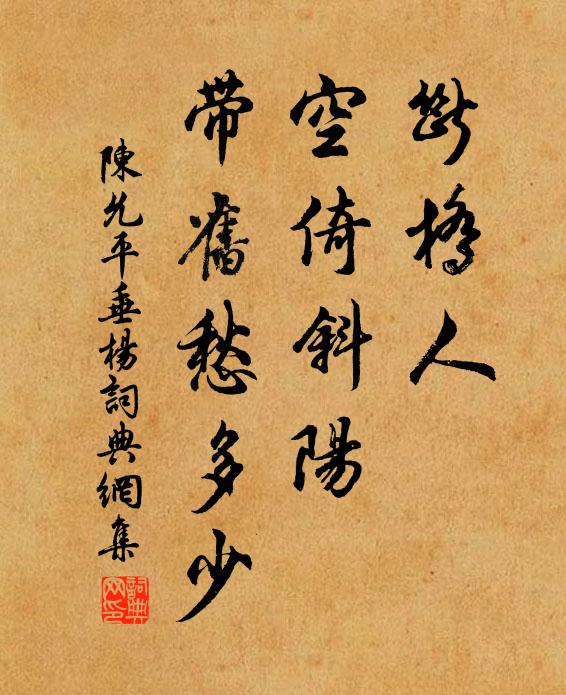 斷橋人
空倚斜陽
帶舊愁多少
陳允平垂楊詞典網集
詞典網印